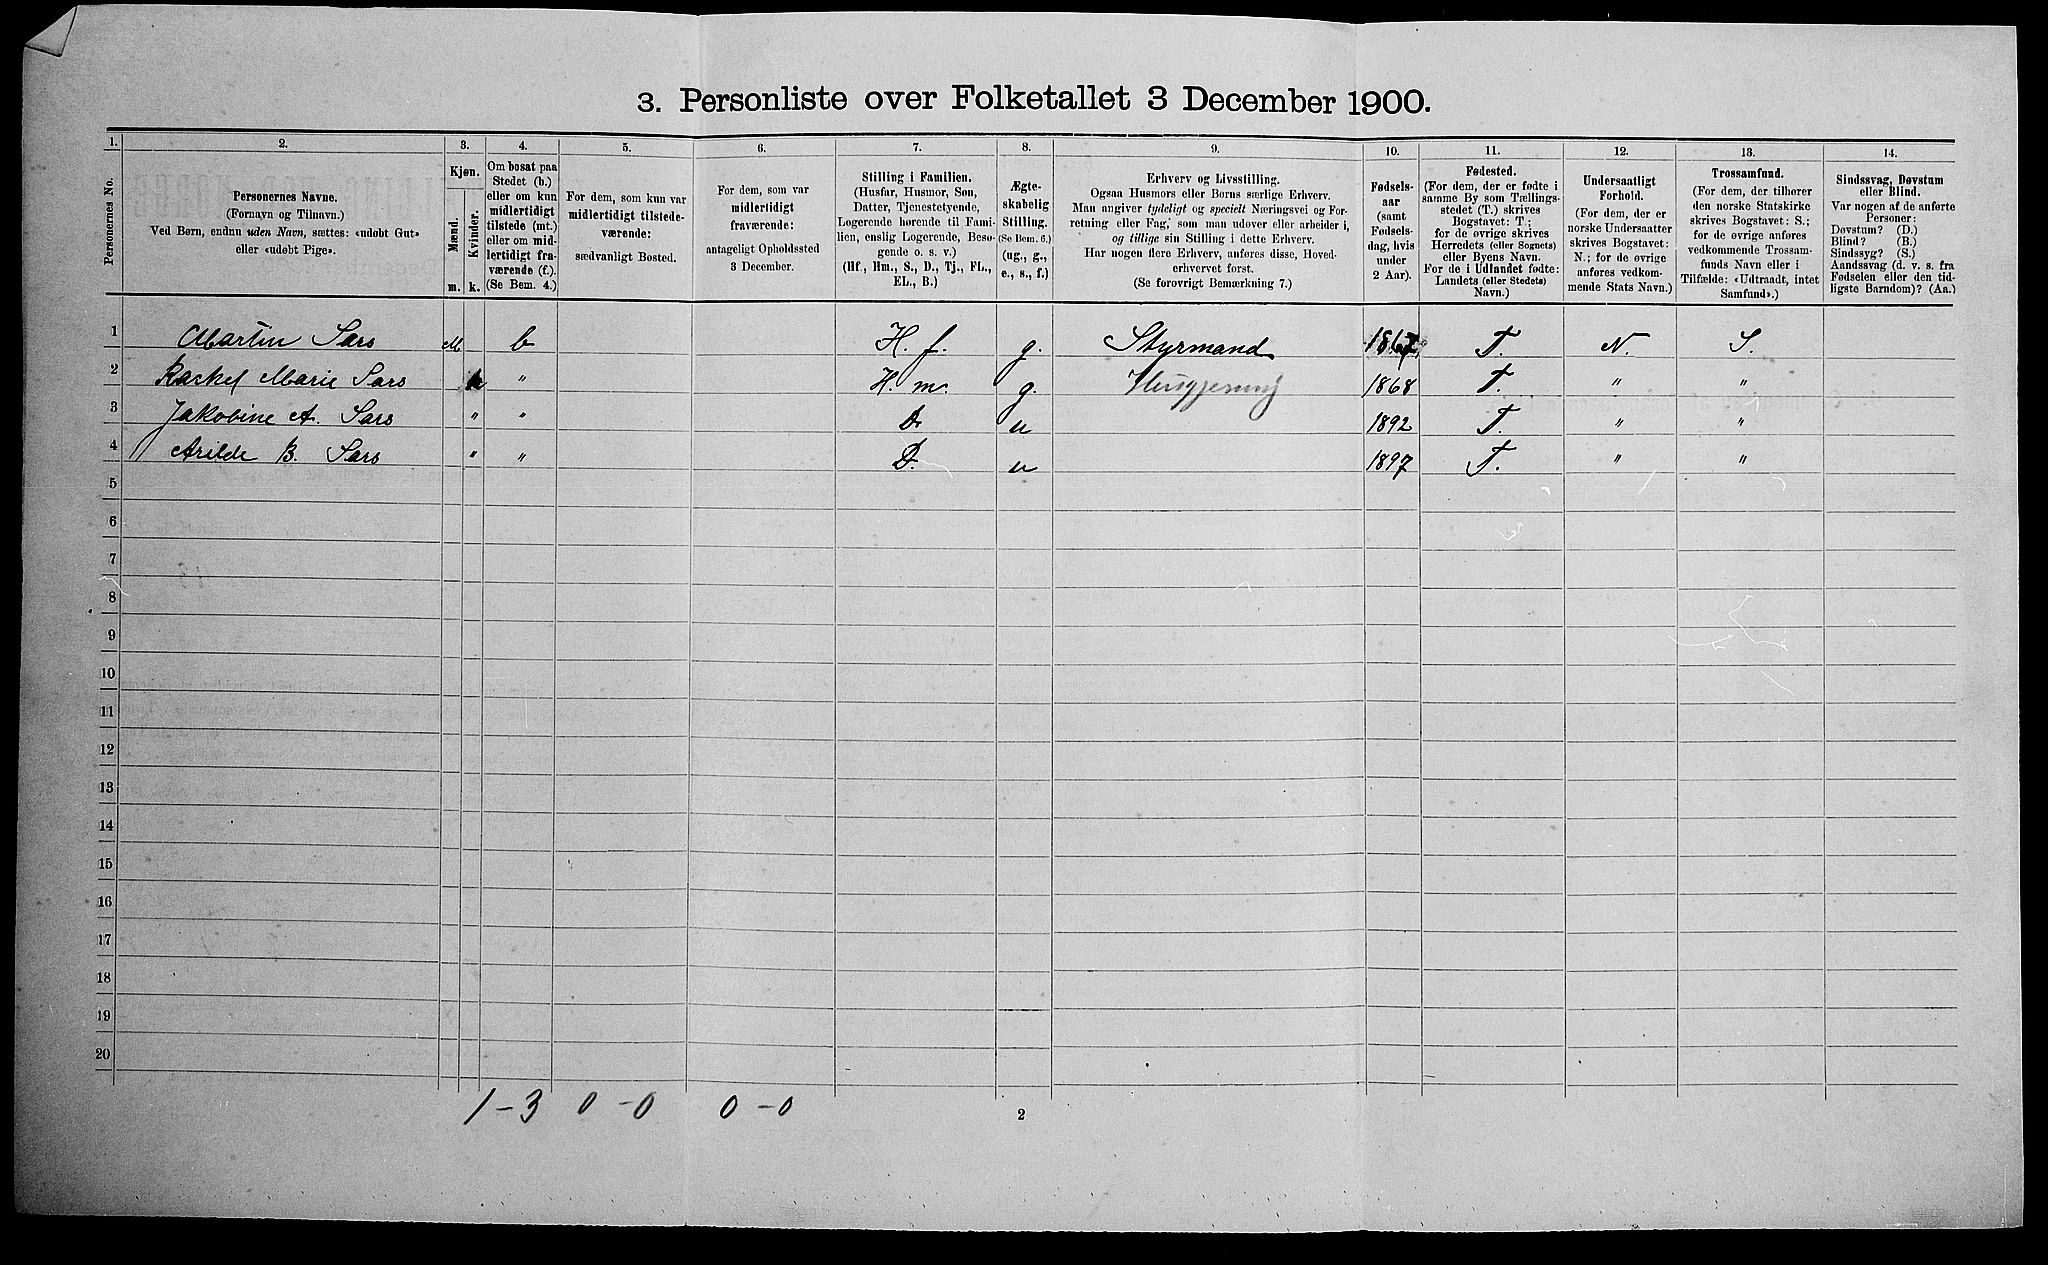 3. Personliste over Folketallet 3 December 1900.
1. 2. 3. 4. 5. 6. 7. 8. 9. 10. 11. 12. 13. 14.
Personernes No.
Personernes Navne.
(Fornavn og Tilnavn.)
Ved Børn, endnu uden Navn, sættes: «udøbt Gut»
eller «udøbt Pige».
Kjøn.
Mænd.
Kvinder.
m. k.
Om bosat paa
Stedet (b.)
eller om kun
midlertidigt
tilstede (mt.)
eller om mid-
lertidigt fra-
værende (f.).
(Se Bem. 4.)
For dem, som kun var
midlertidigt tilstede-
værende:
sædvanligt Bosted.
For dem, som var
midlertidigt
fraværende:
antageligt Opholdssted
3 December.
Stilling i Familien.
(Husfar, Husmor, Søn,
Datter, Tjenestetyende,
Logerende hørende til Fami-
lien, enslig Logerende, Besø-
gende o. s. v.)
(Hf., Hm., S., D., Tj., FL.,
EL., B.)
Ægte-
skabelig
Stilling.
(Se Bem. 6.)
(ug., g.,
e., s., f.)
Erhverv og Livsstilling.
Ogsaa Husmors eller Børns særlige Erhverv.
Man angiver tydeligt og specielt Næringsvei og For-
retning eller Fag, som man udøver eller arbeider i,
og tillige sin Stilling i dette Erhverv.
Har nogen flere Erhverv, anføres disse, Hoved-
erhvervet først.
(Se forøvrigt Bemærkning 7.)
Fødsels-
aar
(samt
Fødsels-
dag, hvis
under
2 Aar).
Fødested.
(For dem, der er fødte i
samme By som Tællings-
stedet (T.) skrives
Bogstavet: T;
for de øvrige skrives
Herredets (eller Sognets)
eller Byens Navn.
For de i Udlandet fødte:
Landets (eller Stedets)
Navn.)
Undersaatligt
Forhold.
(For dem, der er
norske Undersaatter
skrives Bogstavet:
N.; for de øvrige
anføres vedkom-
mende Stats Navn.)
Trossamfund.
(For dem, der tilhører
den norske Statskirke
skrives Bogstavet: S.;
for de øvrige anføres
vedkommende Trossam-
funds Navn eller i
Tilfælde: «Udtraadt, intet
Samfund».)
Sindssvag, Døvstum
eller Blind.
Var nogen af de anførte
Personer:
Døvstum? (D.)
Blind? (B.)
Sindssyg? (S.)
Aandssvag (d. v. s. fra
Fødselen eller den tid-
ligste Barndom)? (Aa.)
1 Martin Sars M b H. f. g. Styrmand 1867 T. N. S.
2 Rachel Marie Sars k " H. m. g. 1868 T. " "
3 Jakobine A. Sars " " D. u 1892 T. " "
4 Arilde B. Sars " " D. u 1897 T. " "
5
6
7
8
9
10
11
12
13
14
15
16
17
18
19
20
1 – 3 0 – 0 0 – 0
2